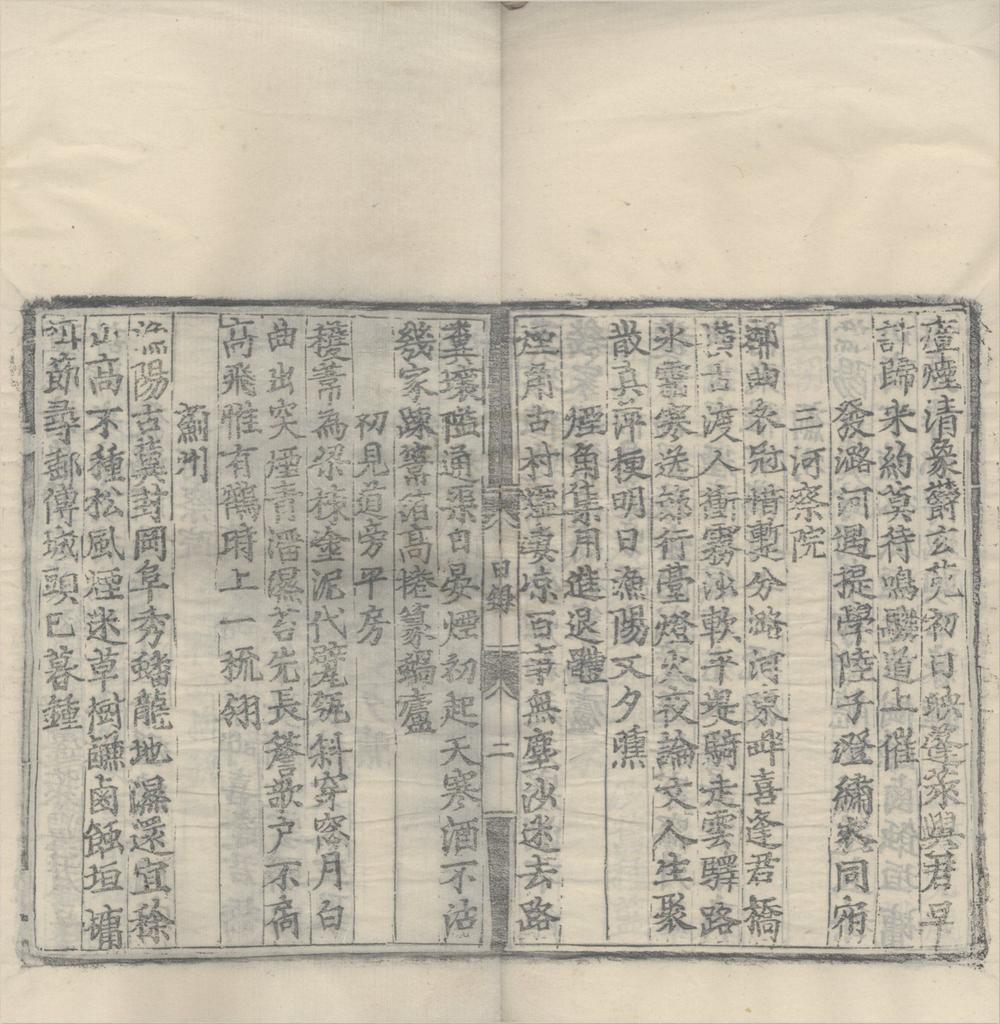 壇煙清象欝玄苑初日映蓬萊與君早
計歸来約莫待鳴騶道上催
發潞河遇提學陸子澄繡衣同宿
三河察院
鄣曲衣冠惜蹔分潞河東畔喜逢君橋
古渡人衝霧沙軟平堤騎走雲驛路
氷霜寒送行臺燈火夜論文人生聚
散真萍梗明日漁陽又夕曛
煙角集用進退體
煙角古村墟凄凉百事無塵沙迷去路
糞壤隘通渠日晏煙初起天寒酒不沽
幾家踈箔高捲篆蝸廬
目錄
二
初見道旁平房
葦為梁秣塗泥代甓甎斜穿窓月白
曲出突煙青潘濕苔先長簷歌户不扃
髙飛惟有鶴時上一梳翎
薊州
漁陽古冀封岡阜秀蟠龍地濕還宜稌
山高不種松風煙迷草樹鹵蝕垣墉
弭節尋郵傳城頭巳暮鍾